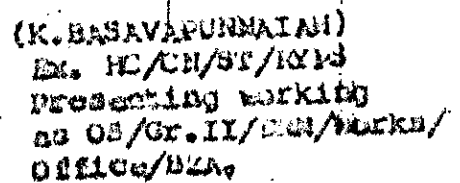 (K.BASAVAPUNNAIAH)
Ex. HC/CN/ST/
Presenting working
as OS/Gr.II//Works/
Office/BZA.